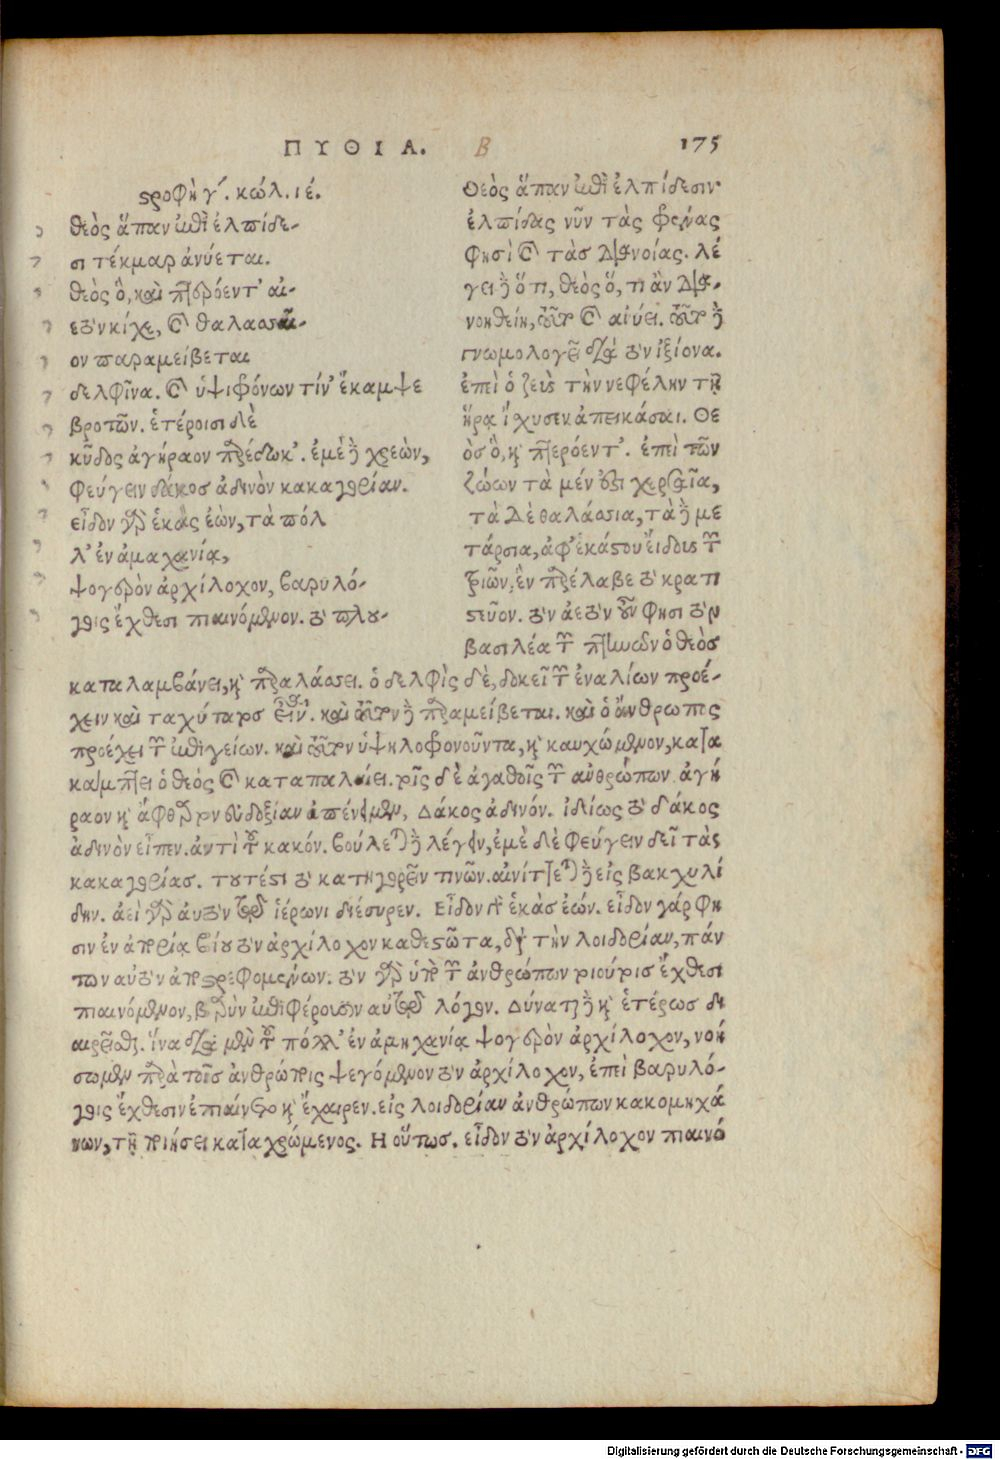 ΠΥΘΙΑ. B 175
στροφὴ γ΄. κώλ. ιέ.
θεὸς ἅπαν ἐπὶ ἐλπίδε-
σι τέκμαρ ἀνύεται.
θεὸς ὃ, καὶ πτερόεντ' αἰ-
ετὸν κίχε, καὶ θαλασσαῖ-
ον παραμείβεται
δελφῖνα. καὶ ὑψιφόνων τίν' ἔκαμψε
βροτῶν. ἑτέροισι δὲ
κῦδος ἀγήραον παρέδωκ'. ἐμὲ δὲ χρεὼν,
φεύγειν δάκοσ ἀδινὸν κακαγορίαν.
εἶδον γὰρ ἑκὰς ἐὼν, τὰ πόλ
λ' ἐν ἀμαχανίᾳ,
ψογερὸν ἀρχίλοχον, βαρυλό-
γοις ἔχθεσι πιαινόμενον. τὸ πλου-
Θεὸς ἅπαν ἐπὶ ἐλπίδεσιν
ἐλπίδας νῦν τὰς φρένας
φησὶ καὶ τὰσ διανοίας. λέ
γει δὲ ὅτι, θεὸς ὅ, τι ἂν δια-
νοηθείη, τοῦτο καὶ αἰύει. τοῦτο δὲ
γνωμολογεῖ διὰ τὸν ἰξίονα.
ἐπεὶ ὁ ζεὺς τὴν νεφέλην τῇ
ἥρᾳ ἴσχυσεν ἀπεικάσαι. Θε
ὸσ ὃ, καὶ πτερόεντ'. ἐπὶ τῶν
ζώων τὰ μέν ἐστι χερσαῖα,
τὰ δὲ θαλάσσια, τὰ δὲ με
τάρσια, ἀφ' ἑκάστου εἴδους τῶν
τριῶν, ἓν παρέλαβε τὸ κρατι
στεῦον. τὸν ἀετὸν οὖν φησι τὸν
βασιλέα τῶν πτηνῶν ὁ θεὸσ
καταλαμβάνει, καὶ παραλάσσει. ὁ δελφὶς δὲ, δοκεῖ τῶν ἐναλίων προέ-
χειν καὶ ταχύτατος εἶναι. καὶ τοῦτον δὲ παραμείβεται. καὶ ὁ ἄνθρωπος
προέχει τῶν ἐπιγείων. καὶ τοῦτον ὑψηλοφονοῦντα, καὶ καυχώμενον, κατα
κάμπτει ὁ θεὸς καὶ καταπαλαίει. τοῖς δὲ ἀγαθοῖς τῶν ανθρώπων ἀγή
ραον καὶ ἄφθαρτον εὐδοξίαν ἀπένειμεν, Δάκος ἀδινόν. ἰδίως τὸ δάκος
ἀδινὸν εἶπεν. ἀντὶ τοῦ κακόν. βούλεται δὲ λέγειν, ἐμὲ δὲ φεύγειν δεῖ τὰς
κακαγορίασ. τουτέστι τὸ κατηγορεῖν τινῶν. αἰνίττεται δὲ εἰς βακχυλί
δην. ἀεὶ γὰρ αυτὸν τῷ ἱέρωνι διέσυρεν. Εἶδον γὰρ ἑκὰσ ἐών. εἶδον γάρ φη
σιν ἐν ἀπορίᾳ βίου τὸν ἀρχίλοχον καθεστῶτα, διὰ τὴν λοιδορίαν, πάν
των αὐτὸν ἀποστρεφομένων. τὸν γὰρ ὑπὸ τῶν ἀνθρώπων τοιούτοισ ἔχθεσι
πιαινόμενον, βαρὺν ἐπιφέρουσιν αὐτῷ λόγον. Δύναται δὲ καὶ ἑτέρωσ δι
αιρεῖσθαι. ἵνα διὰ μὲν τοῦ πόλλ' ἐν ἀμηχανίᾳ ψογερὸν ἀρχίλοχον, νοή
σωμεν παρὰ τοῖσ ἀνθρώποις ψεγόμενον τὸν ἀρχίλοχον, ἐπεὶ βαρυλό-
γοις ἔχθεσιν ἐπιαίνετο καὶ ἔχαιρεν. εἰς λοιδορίαν ἀνθρώπων κακομηχά
νων, τῇ ποιήσει καταχρώμενος. Η οὕτωσ. εἶδον τὸν ἀρχίλοχον πιαινό
Digitalisierung gefördert durch die Deutsche Forschungsgemeinschaft - DFG